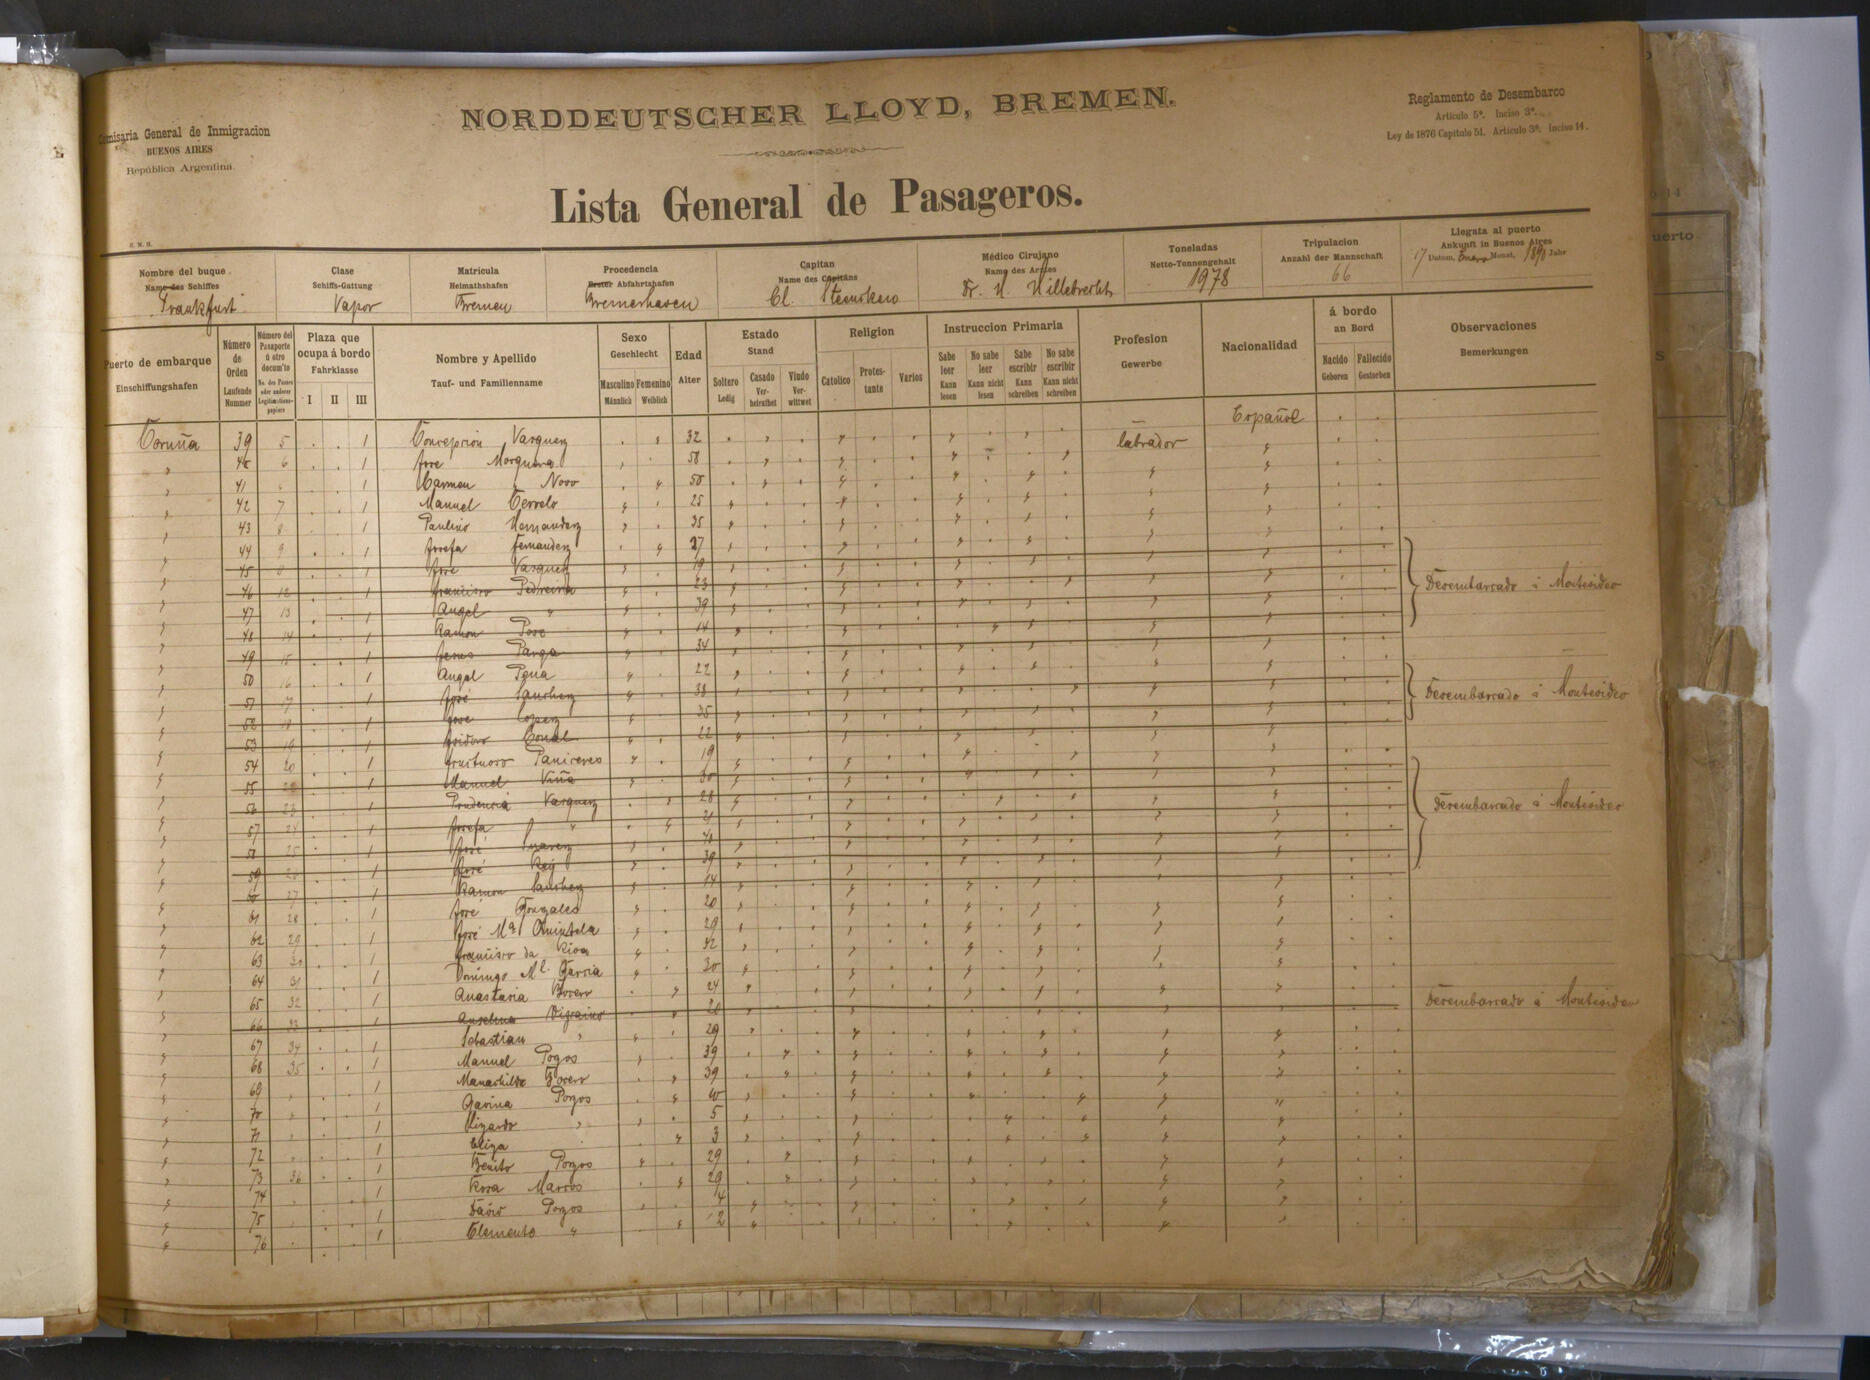 NORDDEUTSCHER LLOYD, BREMEN.
Comisaria General de Inmigracion
BUENOS AIRES
República Argentina.
Reglamento de Desembarco
Artículo 5º. Inciso 3º.
Ley de 1876 Capítulo 51. Artículo 3º. Inciso 14.
Lista General de Pasageros.
Nombre del buque
Name des Schiffes
Frankfurt
Clase
Schiffs-Gattung
Vapor
Matricula
Heimathshafen
Bremen
Procedencia
Erster Abfahrtshafen
Bremerhaven
Capitan
Name des Capitäns
Cl.
Médico Cirujano
Name des Arztes
Dr. H. Hillebrecht
Toneladas
Netto-Tonnengehalt
1978
Tripulacion
Anzahl der Mannschaft
66
Llegata al puerto
Ankunft in Buenos Aires
17 Datum, Enero Monat, 1890 Jahr
Puerto de embarque
Einschiffungshafen
Número de Orden
Laufende Nummer
Número del Pasaporte ú otro docum'to
No. des Passes oder anderer Legitimations-papiere
Plaza que ocupa á bordo
Fahrklasse
I II III
Nombre y Apellido
Tauf- und Familienname
Sexo
Geschlecht
Masculino Männlich
Femenino Weiblich
Edad
Alter
Estado
Stand
Soltero Ledig
Casado Ver-heirathet
Viudo Ver-wittwet
Religion
Catolico
Protes-tante
Varios
Instruccion Primaria
Sabe leer Kann lesen
No sabe leer Kann nicht lesen
Sabe escribir Kann schreiben
No sabe escribir Kann nicht schreiben
Profesion
Gewerbe
Nacionalidad
á bordo
an Bord
Nacido Geboren
Fallecido Gestorben
Observaciones
Bemerkungen
Coruña 39 5 1 Concepcion Vasquez 32 Español
40 6 1 Jose 58 labrador
41 1 Carmen Novo 50
42 7 1 Manuel 25
43 8 1 Paulino Hernandez 35
44 9 1 Josefa Fernandez 27
45 1 José Vasquez 19
46 12 1 Francisco Pedreira 23
47 13 1 Angel " 39
48 14 1 Ramon Pose 14
49 15 1 Jesus Parga 34
Desembarcado á Montevideo
50 16 1 Angel Pena 22
51 17 1 José Sanchez 38
52 1 José Lopez 35
53 19 1 Isidoro 22
Desembarcado á Montevideo
54 20 1 19
55 1 Manuel Viña 30
56 23 1 Prudencia Vasquez 28
57 24 1 Josefa " 21
58 25 1 José Suarez
59 1 José Rey 39
60 27 1 Ramon Sanchez 14
Desembarcado á Montevideo
61 28 1 José Gonzalez 20
62 29 1 José Mª Quintela 29
63 30 1 Francisco da 32
64 31 1 Domingo Ml. Garcia 30
65 32 1 Anastasia 24
66 33 1 Anselma 20
Desembarcado á Montevideo
67 34 1 Sebastian " 29
68 35 1 Manuel Pozos 39
69 1 39
70 1 Pozos
71 1 " 5
72 1 Eliza 3
73 36 1 Benito Pozos 29
74 1 Rosa Marcos 29
75 1 David Pozos 4
76 1 Clemente " 2